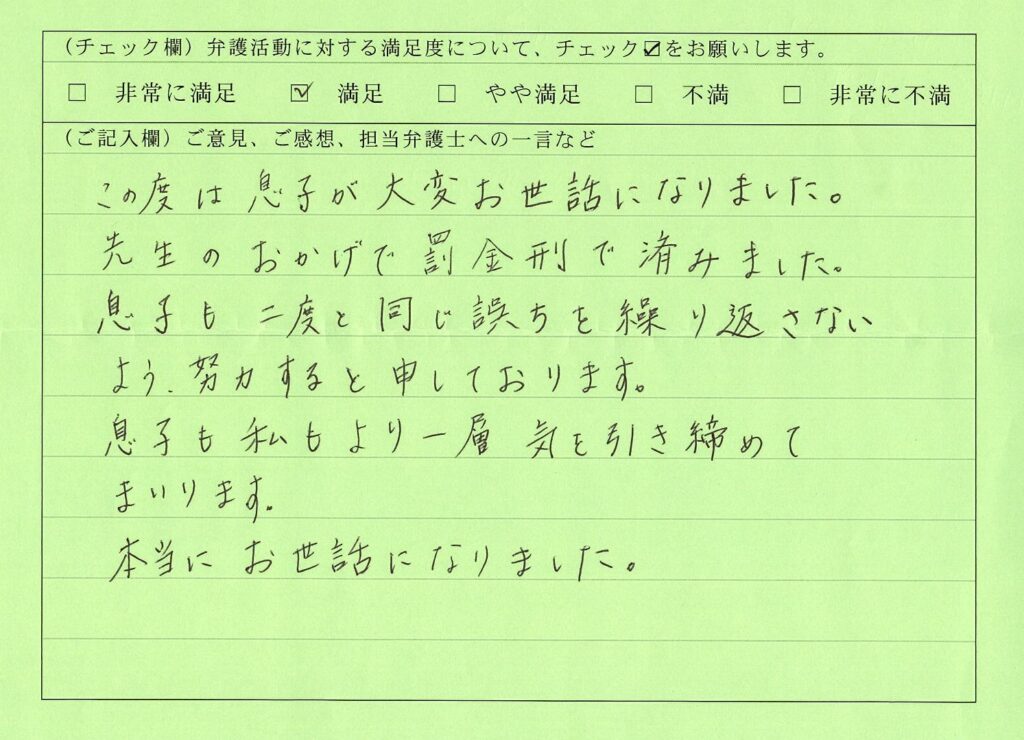 （チェック欄）弁護活動に対する満足度について、チェック☑をお願いします。
□ 非常に満足 ☑ 満足 □ やや満足 □ 不満 □ 非常に不満
（ご記入欄）ご意見、ご感想、担当弁護士への一言など
この度は息子が大変お世話になりました。
先生のおかげで罰金刑で済みました。
息子も二度と同じ誤ちを繰り返さない
よう、努力すると申しております。
息子も私もより一層 気を引き締めて
まいります。
本当にお世話になりました。